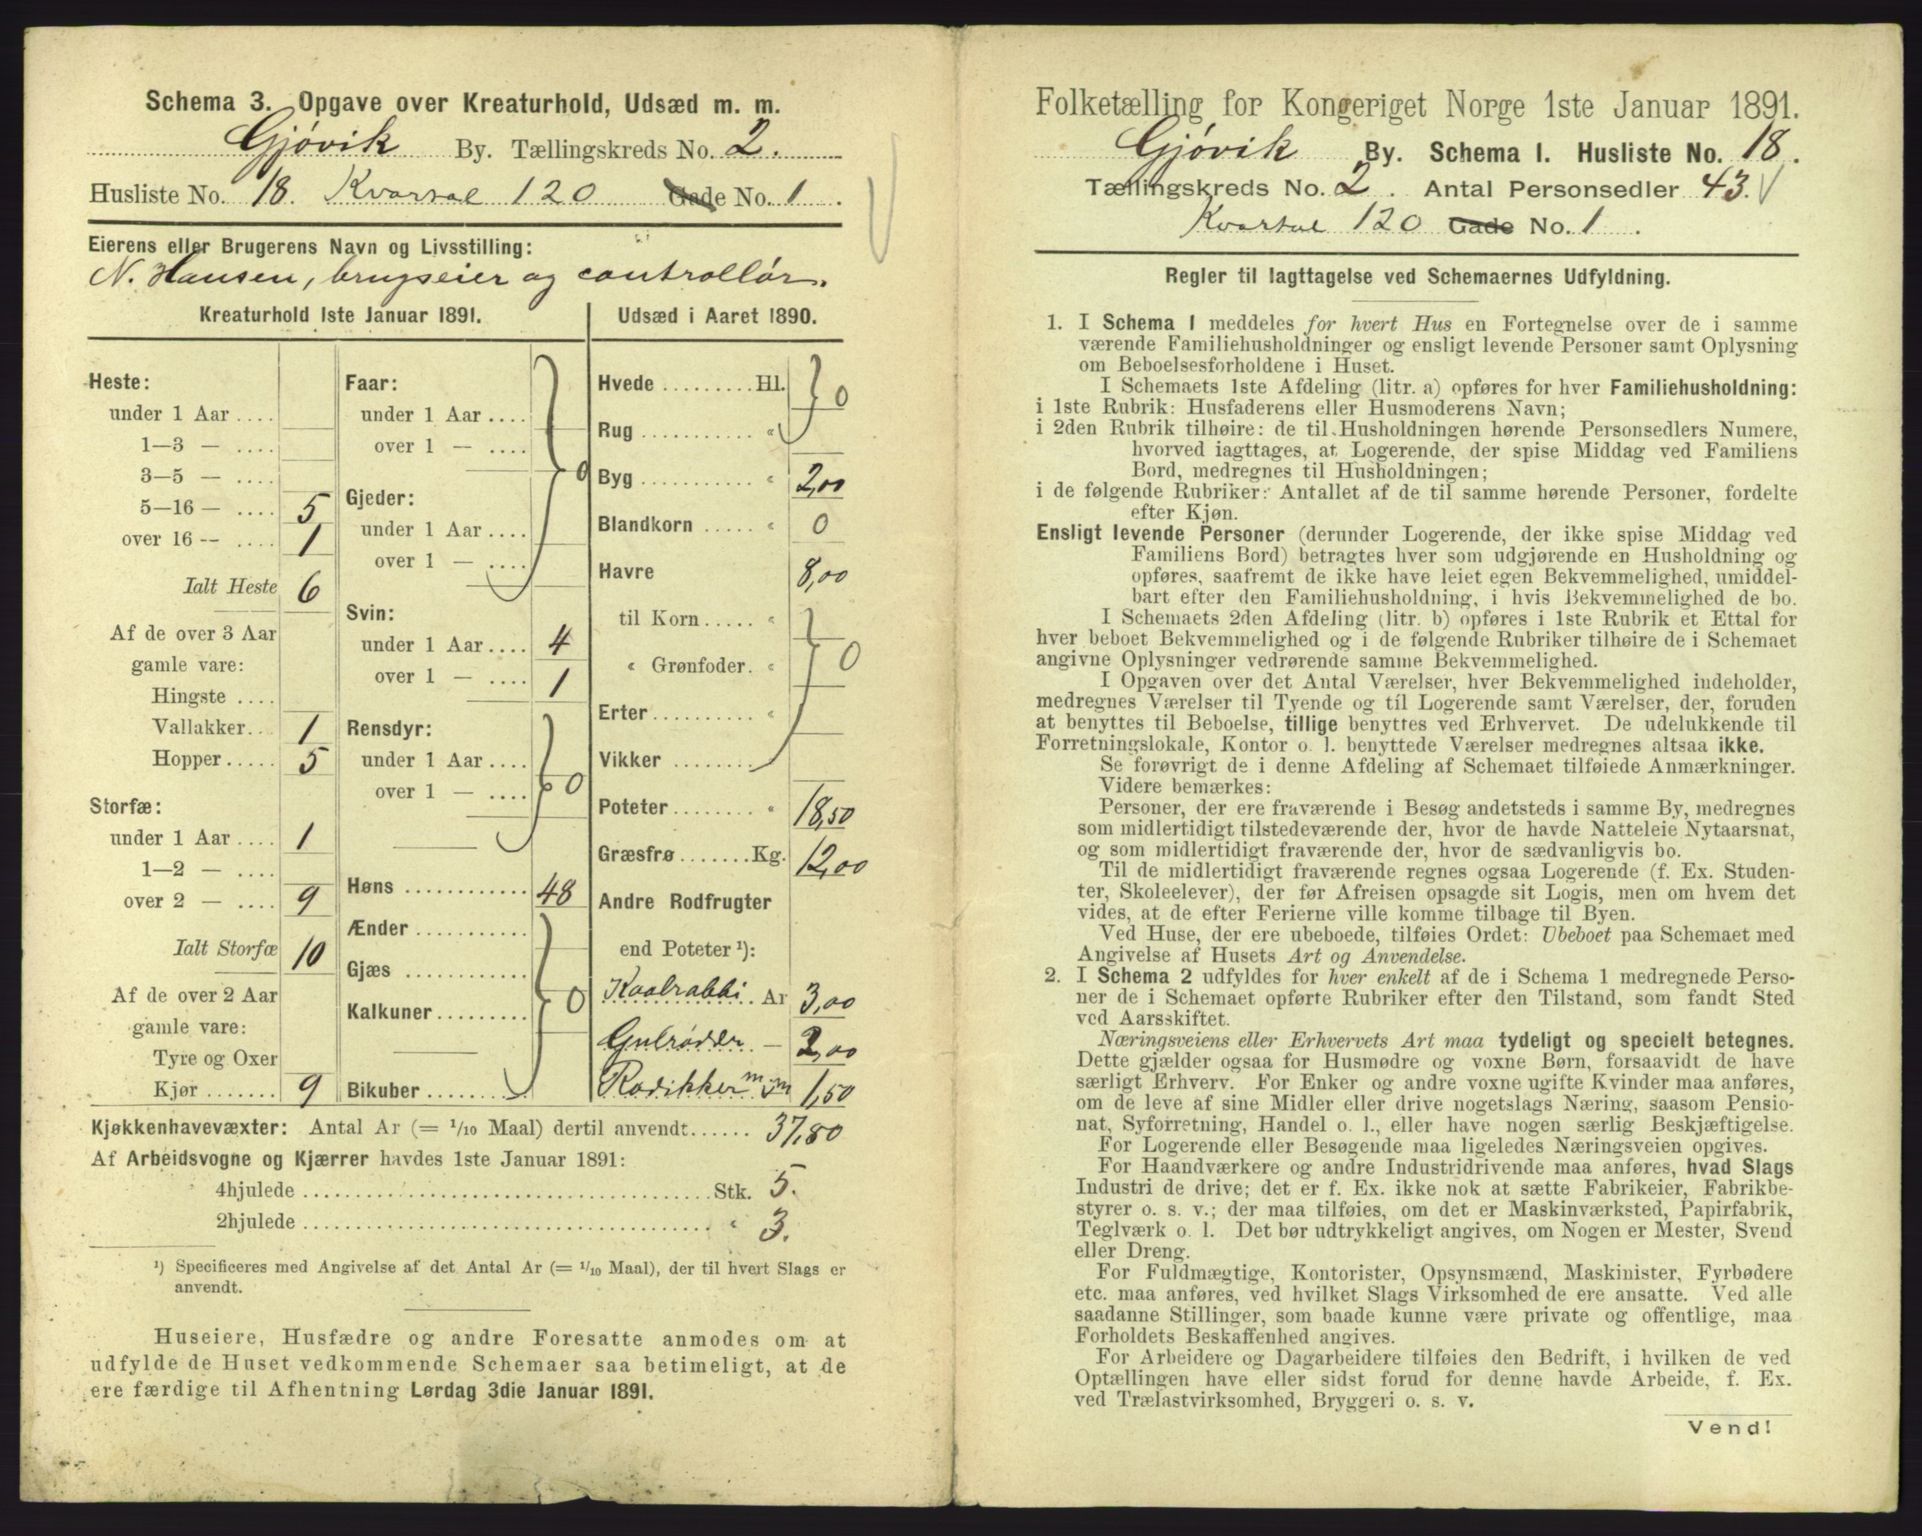 Schema 3. Opgave over Kreaturhold, Udsæd m. m.
Gjøvik By. Tællingskreds No. 2.
Husliste No. 18. Kvartal 120 Gade No. 1.
Eierens eller Brugerens Navn og Livsstilling:
N. Hansen, brugseier og controllør.
Kreaturhold 1ste Januar 1891.
Heste:
under 1 Aar ....
1—3 — ....
3—5 — ....
5—16 — .... 5
over 16 -- .... 1
Ialt Heste 6
Af de over 3 Aar
gamle vare:
Hingste ....
Vallakker.. 1
Hopper ..... 5
Storfæ:
under 1 Aar .... 1
1—2 — ....
over 2 — .... 9
Ialt Storfæ 10
Af de over 2 Aar
gamle vare:
Tyre og Oxer
Kjør ....... 9
Faar:
under 1 Aar ....
over 1 — ....
0
Gjeder:
under 1 Aar ....
over 1 — ....
Svin:
under 1 Aar .... 4
over 1 — .... 1
Rensdyr:
under 1 Aar ....
over 1 — ....
0
Høns ............ 48
Ænder ..........
Gjæs ............
Kalkuner .........
0
Bikuber .........
Udsæd i Aaret 1890.
Hvede ......... Hl.
0
Rug ........... «
Byg ........... « 2,00
Blandkorn ..... « 0
Havre 8,00
til Korn ..... «
« Grønfoder. «
0
Erter .......... «
Vikker ........
Poteter ........ « 18,50
Græsfrø ....... Kg. 12,00
Andre Rodfrugter
end Poteter ¹):
Kaalrabbi Ar 3,00
Gulrødder — 2,00
Radikker m m 1,50
Kjøkkenhavevæxter: Antal Ar (= 1/10 Maal) dertil anvendt...... 37,80
Af Arbeidsvogne og Kjærrer havdes 1ste Januar 1891:
4hjulede ........................................ Stk. 5.
2hjulede ........................................ « 3.
¹) Specificeres med Angivelse af det Antal Ar (= 1/10 Maal), der til hvert Slags er
anvendt.
Huseiere, Husfædre og andre Foresatte anmodes om at
udfylde de Huset vedkommende Schemaer saa betimeligt, at de
ere færdige til Afhentning Lørdag 3die Januar 1891.
Folketælling for Kongeriget Norge 1ste Januar 1891.
Gjøvik By. Schema I. Husliste No. 18.
Tællingskreds No. 2. Antal Personsedler 43.
Kvartal 120 Gade No. 1.
Regler til Iagttagelse ved Schemaernes Udfyldning.
1. I Schema 1 meddeles for hvert Hus en Fortegnelse over de i samme
værende Familiehusholdninger og ensligt levende Personer samt Oplysning
om Beboelsesforholdene i Huset.
I Schemaets 1ste Afdeling (litr. a) opføres for hver Familiehusholdning:
i 1ste Rubrik: Husfaderens eller Husmoderens Navn;
i 2den Rubrik tilhøire: de til Husholdningen hørende Personsedlers Numere,
hvorved iagttages, at Logerende, der spise Middag ved Familiens
Bord, medregnes til Husholdningen;
i de følgende Rubriker: Antallet af de til samme hørende Personer, fordelte
efter Kjøn.
Ensligt levende Personer (derunder Logerende, der ikke spise Middag ved
Familiens Bord) betragtes hver som udgjørende en Husholdning og
opføres, saafremt de ikke have leiet egen Bekvemmelighed, umiddel-
bart efter den Familiehusholdning, i hvis Bekvemmelighed de bo.
I Schemaets 2den Afdeling (litr. b) opføres i 1ste Rubrik et Ettal for
hver beboet Bekvemmelighed og i de følgende Rubriker tilhøire de i Schemaet
angivne Oplysninger vedrørende samme Bekvemmelighed.
I Opgaven over det Antal Værelser, hver Bekvemmelighed indeholder,
medregnes Værelser til Tyende og til Logerende samt Værelser, der, foruden
at benyttes til Beboelse, tillige benyttes ved Erhvervet. De udelukkende til
Forretningslokale, Kontor o. l. benyttede Værelser medregnes altsaa ikke.
Se forøvrigt de i denne Afdeling af Schemaet tilføiede Anmærkninger.
Videre bemærkes:
Personer, der ere fraværende i Besøg andetsteds i samme By, medregnes
som midlertidigt tilstedeværende der, hvor de havde Natteleie Nytaarsnat,
og som midlertidigt fraværende der, hvor de sædvanligvis bo.
Til de midlertidigt fraværende regnes ogsaa Logerende (f. Ex. Studen-
ter, Skoleelever), der før Afreisen opsagde sit Logis, men om hvem det
vides, at de efter Ferierne ville komme tilbage til Byen.
Ved Huse, der ere ubeboede, tilføies Ordet: Ubeboet paa Schemaet med
Angivelse af Husets Art og Anvendelse.
2. I Schema 2 udfyldes for hver enkelt af de i Schema 1 medregnede Perso-
ner de i Schemaet opførte Rubriker efter den Tilstand, som fandt Sted
ved Aarsskiftet.
Næringsveiens eller Erhvervets Art maa tydeligt og specielt betegnes.
Dette gjælder ogsaa for Husmødre og voxne Børn, forsaavidt de have
særligt Erhverv. For Enker og andre voxne ugifte Kvinder maa anføres,
om de leve af sine Midler eller drive nogetslags Næring, saasom Pensio-
nat, Syforretning, Handel o. l., eller have nogen særlig Beskjæftigelse.
For Logerende eller Besøgende maa ligeledes Næringsveien opgives.
For Haandværkere og andre Industridrivende maa anføres, hvad Slags
Industri de drive; det er f. Ex. ikke nok at sætte Fabrikeier, Fabrikbe-
styrer o. s. v.; der maa tilføies, om det er Maskinværksted, Papirfabrik,
Teglværk o. l. Det bør udtrykkeligt angives, om Nogen er Mester, Svend
eller Dreng.
For Fuldmægtige, Kontorister, Opsynsmænd, Maskinister, Fyrbødere
etc. maa anføres, ved hvilket Slags Virksomhed de ere ansatte. Ved alle
saadanne Stillinger, som baade kunne være private og offentlige, maa
Forholdets Beskaffenhed angives.
For Arbeidere og Dagarbeidere tilføies den Bedrift, i hvilken de ved
Optællingen have eller sidst forud for denne havde Arbeide, f. Ex.
ved Trælastvirksomhed, Bryggeri o. s. v.
Vend!